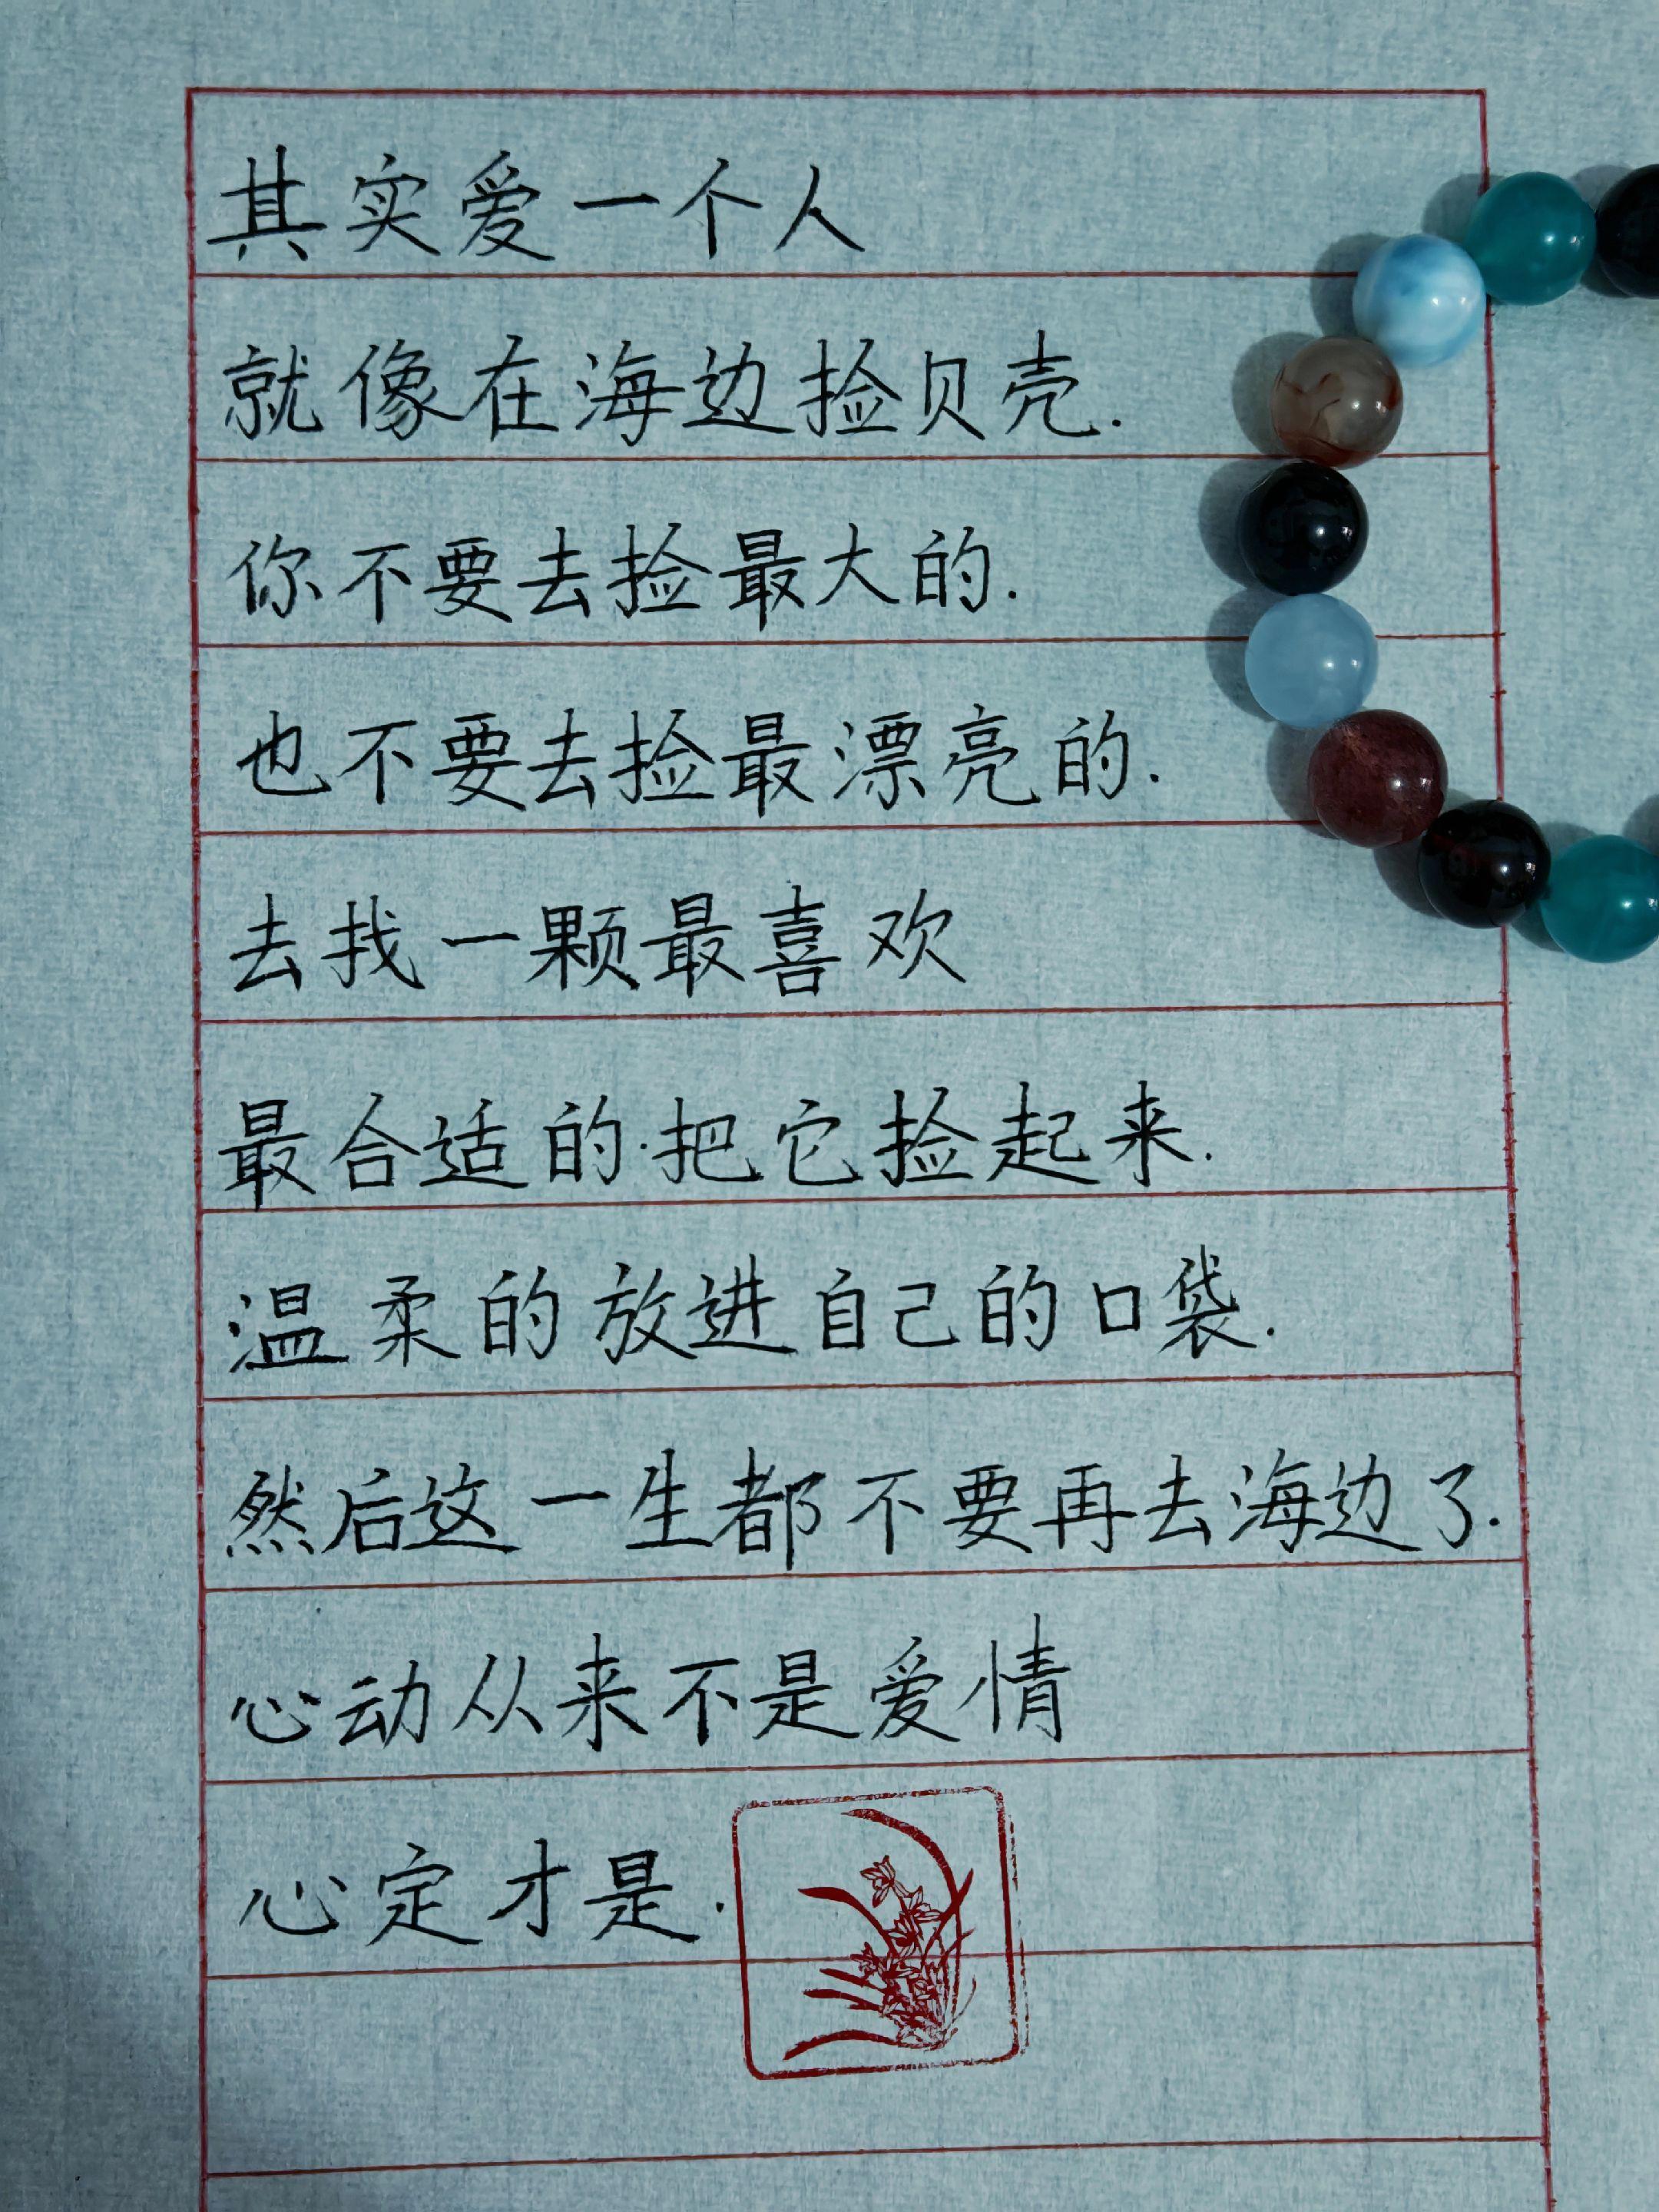 其实爱一个人
就像在海边捡贝壳.
你不要去捡最大的.
也不要去捡最漂亮的.
去找一颗最喜欢
最合适的.把它捡起来.
温柔的放进自己的口袋.
然后这一生都不要再去海边了.
心动从来不是爱情
心定才是.